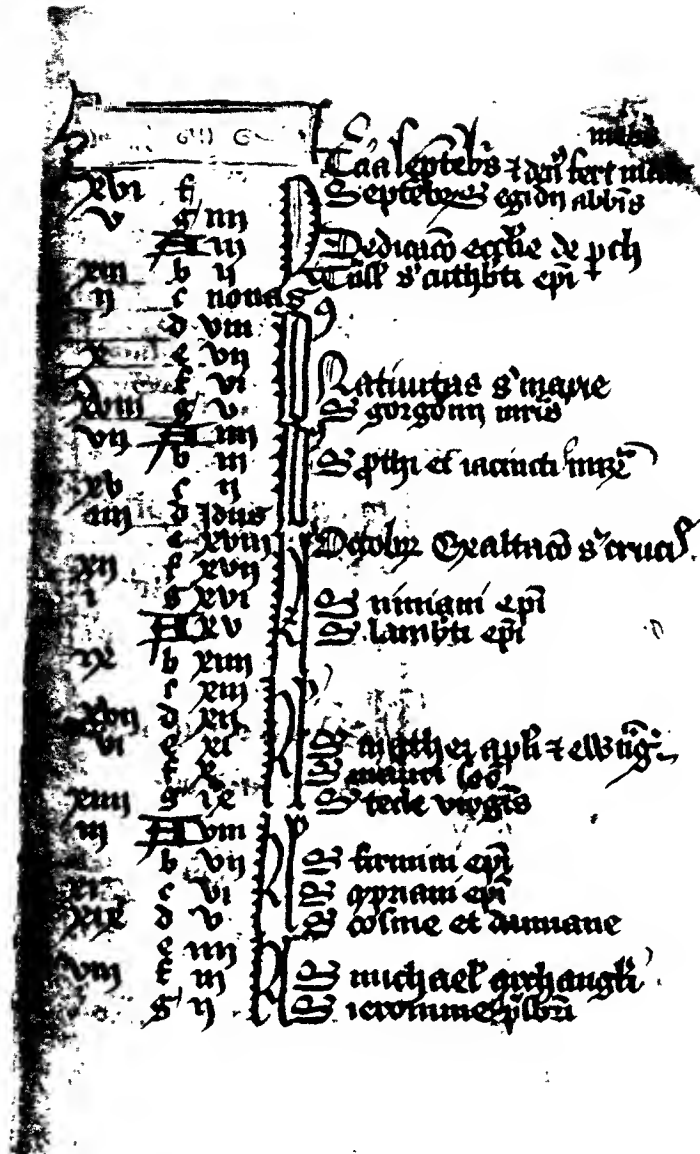 mebꝭ
Tercia septēbꝭ ⁊ den' fert
xvi f Septēbꝛ S egidij abbīs
v g iiij
A iij Dedicacō ecclīe de
xiii b ij Tnsl' s' cuthbti epī
ij c nonas
d viii
x e vii
f vi Natiuitas s' marie
xviii g v S gorgonij mrīs
vij A iiij
b iij S pthi et iacincti mr̄
xv c ij
iiij d Idus
e xviii Octobꝛ Exaltacō s' crucis
xij f xvii
i g xvi S niniani epī
A xv S lambti epī
ix b xiiij
c xiii
xvij d xij
vi e xi S mathei apli ⁊ ewāg
f x S maurī
xiiij g ix S tecle virgīs
iij A viij
b vij S firmini epī
xi c vi S cipriani epī
xix d v S cosme et damiane
e iiij
viij f iij S michael archangli
g ij S ieronimi pbri